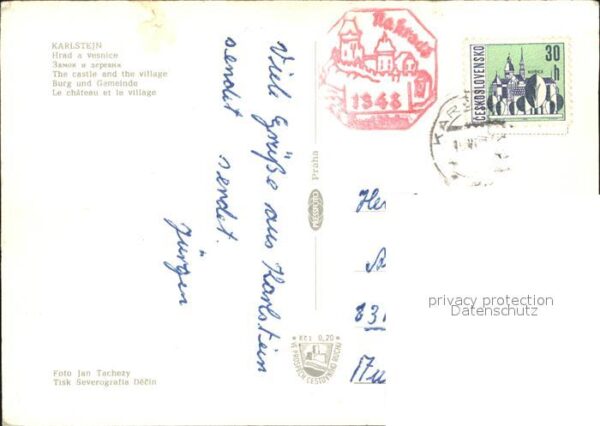 KARLSTEJN
Hrad a vesnice
Замок и деревня
The castle and the village
Burg und Gemeinde
Le château et le village
1348
ČESKOSLOVENSKO
30 h
KAR
Viele Grüße aus Karlstein
sendet sendet.
Jürgen
PRESSFOTO Praha
He
831
Mü
privacy protection
Datenschutz
Kčs 0,20
VE PROSPĚCH CESTOVNÍHO RUCHU
Foto Jan Tachezy
Tisk Severografia Děčín